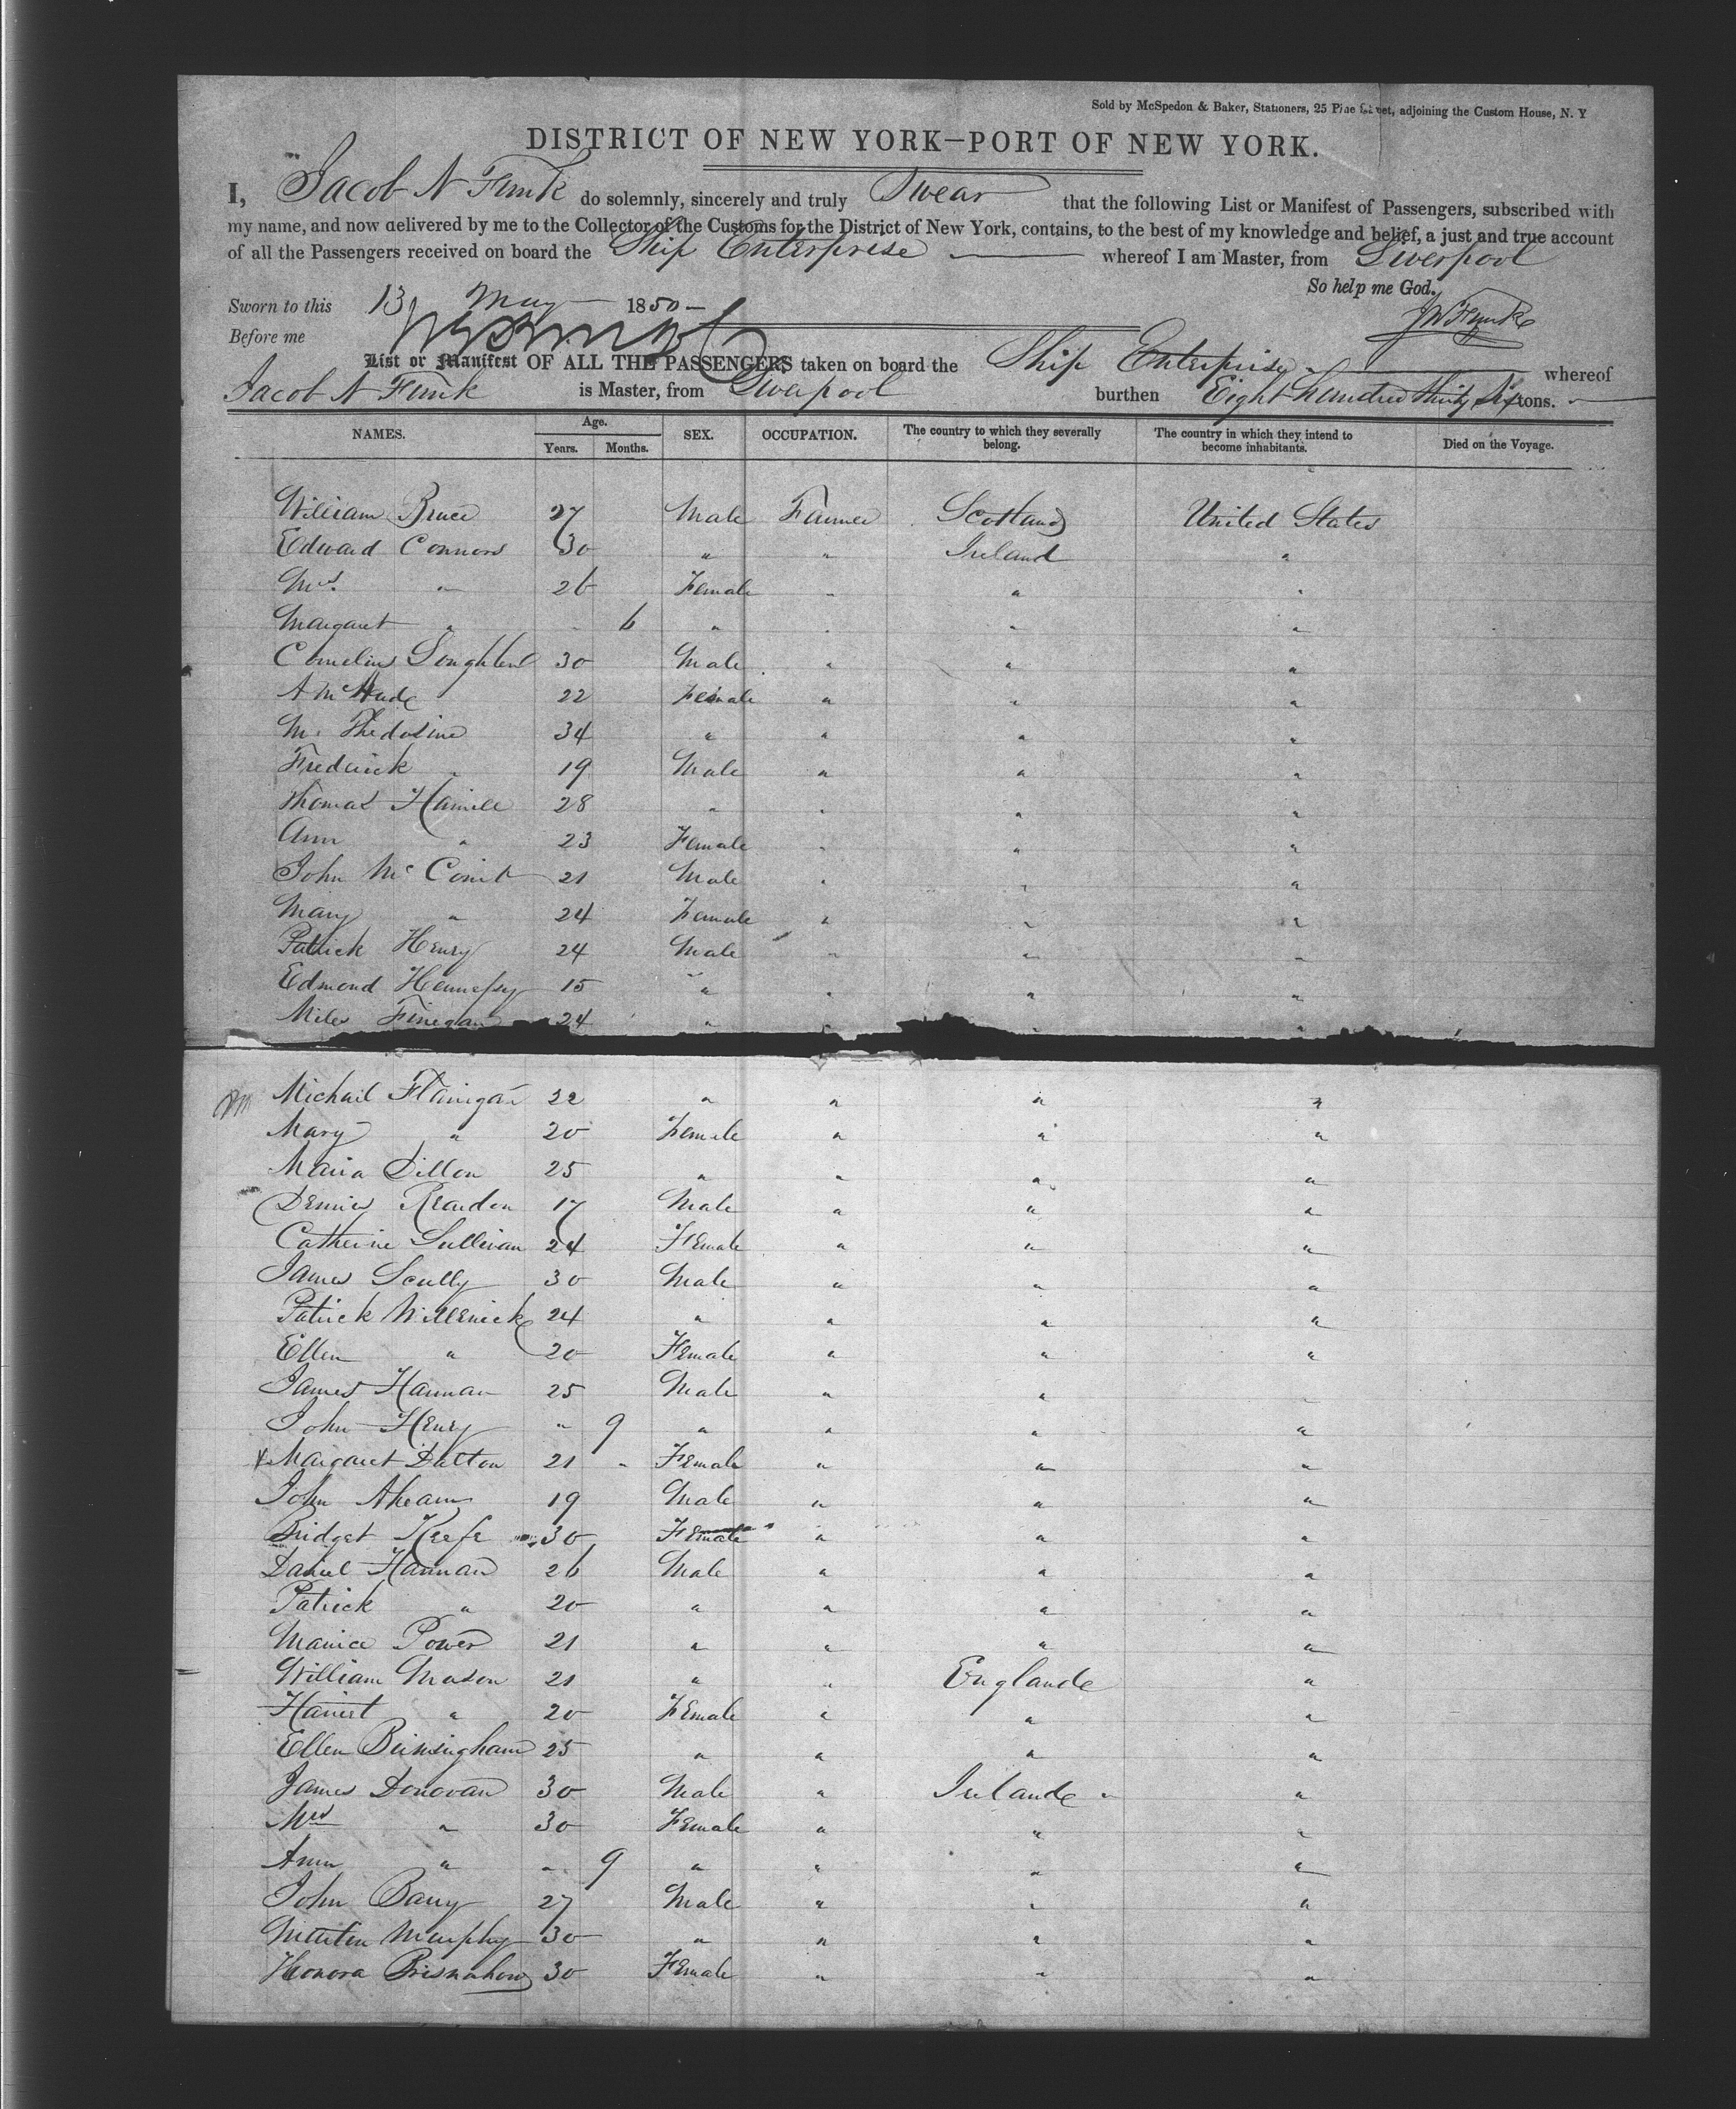 Sold by McSpedon & Baker, Stationers, 25 Pine Street, adjoining the Custom House, N. Y
DISTRICT OF NEW YORK—PORT OF NEW YORK.
I, Jacob N Funk do solemnly, sincerely and truly Swear that the following List or Manifest of Passengers, subscribed with
my name, and now delivered by me to the Collector of the Customs for the District of New York, contains, to the best of my knowledge and belief, a just and true account
of all the Passengers received on board the Ship Enterprise whereof I am Master, from Liverpool
So help me God.
Sworn to this 13 May 1850 J N Funk
Before me
List or Manifest OF ALL THE PASSENGERS taken on board the Ship Enterprise whereof
Jacob N Funk is Master, from Liverpool burthen Eight hundred thirty Six tons.
NAMES. Age. Years. Months. SEX. OCCUPATION. The country to which they severally belong. The country in which they intend to become inhabitants. Died on the Voyage.
William Bruce 27 Male Farmer Scotland United States
Edward Connors 30 " " Ireland "
Mrs. " 26 Female " " "
Margaret " " 6 " " " "
Cornelius 30 Male " " "
A 22 Female " " "
M. 34 " " " "
Frederick " 19 Male " " "
Thomas Hamill 28 " " " "
Ann " 23 Female " " "
John 21 Male " " "
Mary " 24 Female " " "
Patrick Henry 24 Male " " "
Edmond Hennessy 15 " " " "
Miles Finegan 24 " " " "
Michail Flanigan 22 " " " "
Mary " 20 Female " " "
Maria Dillon 25 " " " "
Dennis Reardon 17 Male " " "
Catherine Sullivan 24 Female " " "
James Scully 30 Male " " "
Patrick 24 " " " "
Ellen " 20 Female " " "
James Hannan 25 Male " " "
John Henry " 9 " " " "
x Margaret Dalton 21 " Female " " "
John Ahearn 19 Male " " "
Bridget Keefe 30 Female " " "
Daniel Hannan 26 Male " " "
Patrick " 20 " " " "
Maurice Power 21 " " " "
William Mason 21 " " Englande "
Harriet " 20 Female " " "
Ellen Birmingham 25 " " " "
James Donovan 30 Male " Irelande "
Mrs " 30 Female " " "
Ann " " 9 " " " "
John Barry 27 Male " " "
Martin Murphy 30 " " " "
Honora 30 Female " " "